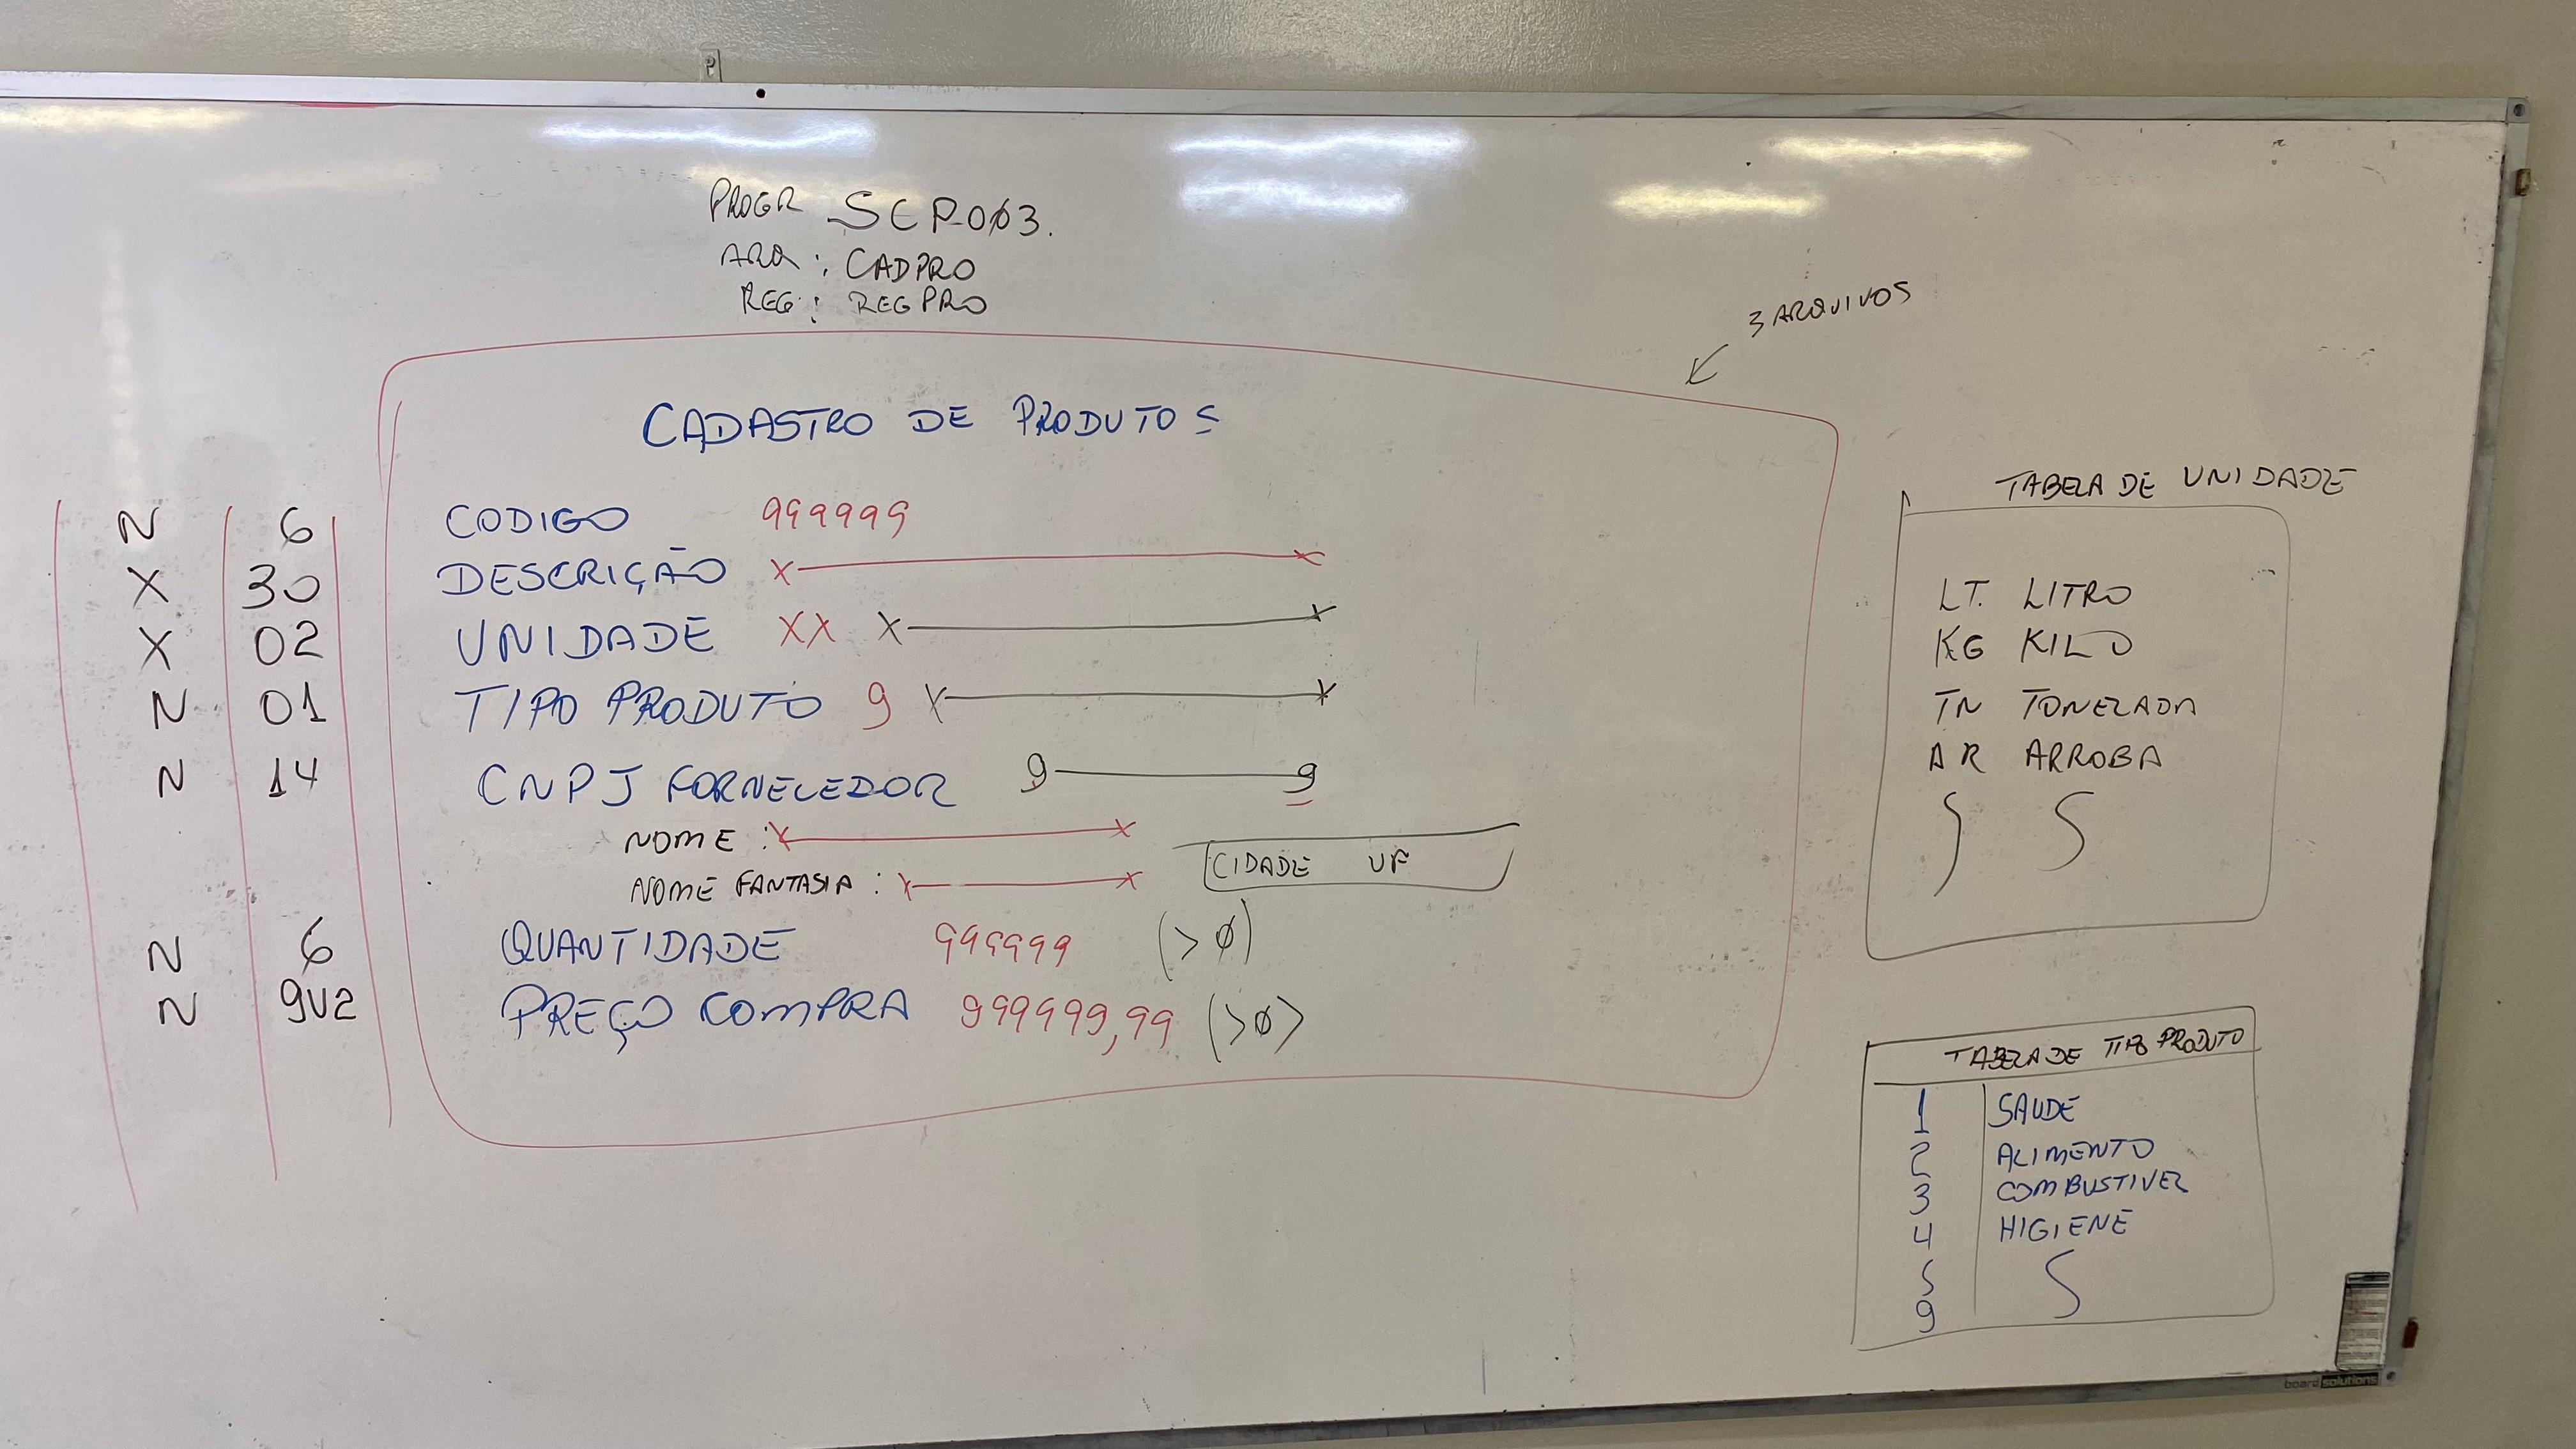 PROGR SCP003.
ARQ: CADPRO
REG: REGPRO
3 ARQUIVOS
CADASTRO DE PRODUTOS
N 6 CODIGO 999999
X 30 DESCRIÇÃO X X
X 02 UNIDADE XX X X
N 01 TIPO PRODUTO 9 X X
N 14 CNPJ FORNECEDOR 9 9
NOME : X X
CIDADE UF
NOME FANTASIA : X X
N 6 QUANTIDADE 999999 (>Ø)
N 9V2 PREÇO COMPRA 999999,99 (>Ø)
TABELA DE UNIDADE
LT. LITRO
KG KILO
TN TONELADA
AR ARROBA
TABELA DE TIPO PRODUTO
1 SAUDE
2 ALIMENTO
3 COMBUSTIVEL
4 HIGIENE
9
board solutions